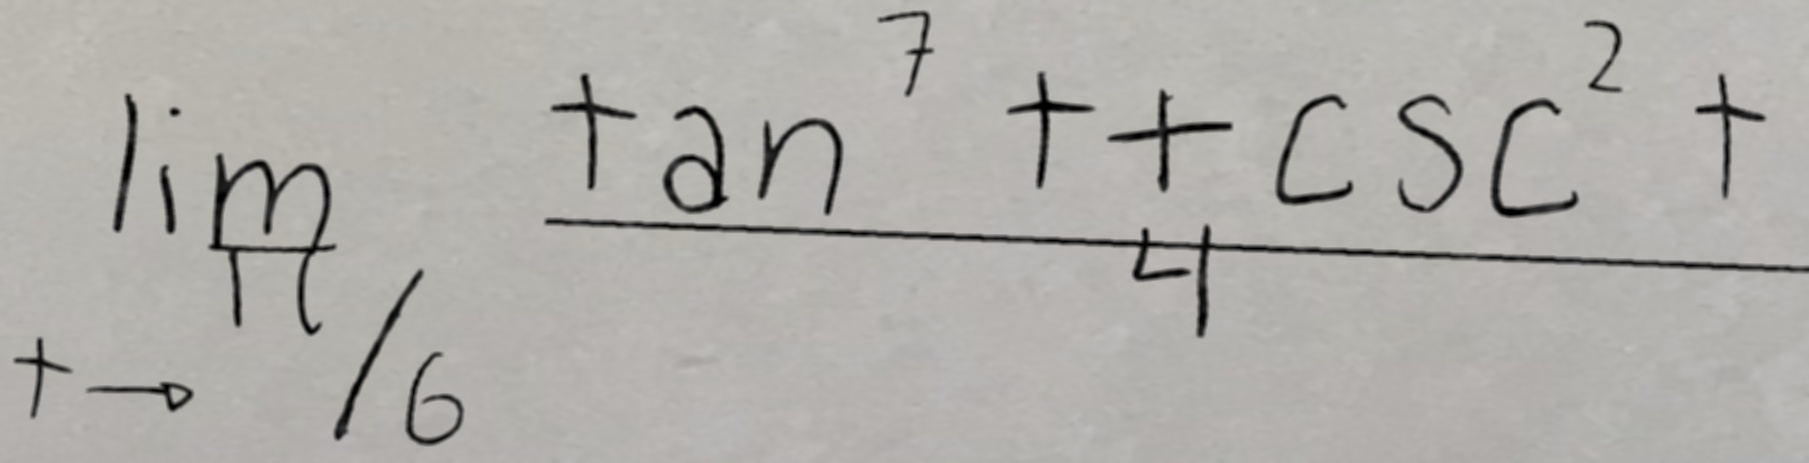 lim t→π/6 (tan^7 t + csc^2 t)/4